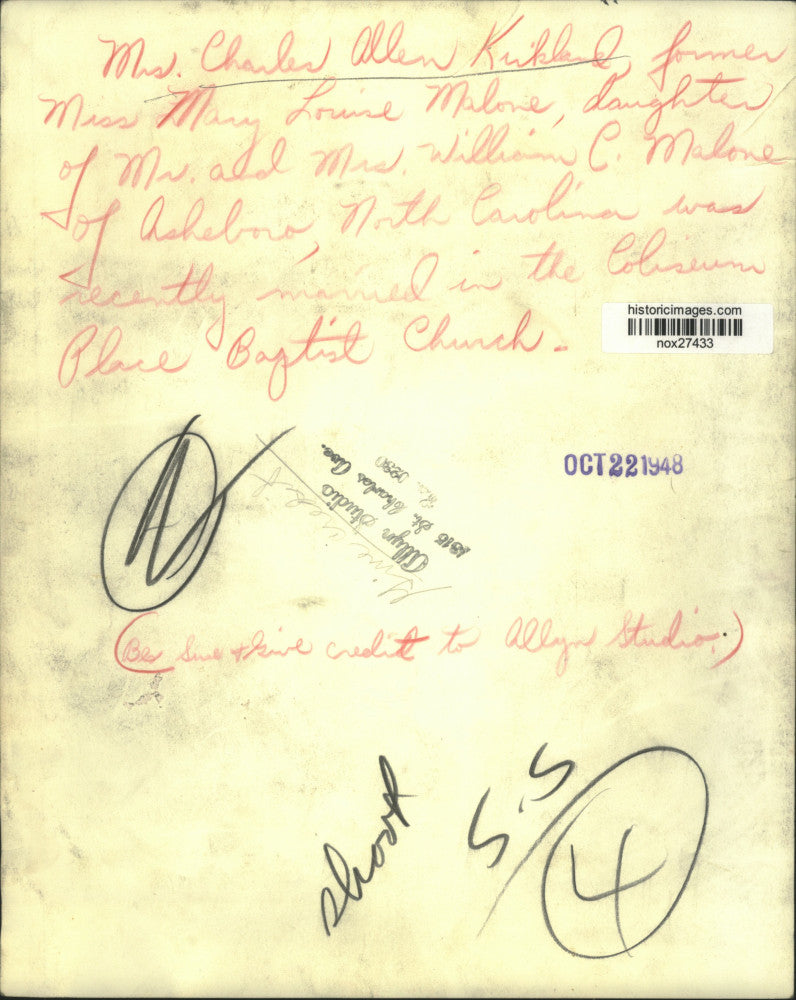 Mrs. Charles Allen Kirkland, former
Miss Mary Louise Malone, daughter
of Mr. and Mrs. William C. Malone
of Asheboro, North Carolina was
recently married in the Coliseum
Place Baptist Church.
historicimages.com
nox27433
OCT 22 1948
Allyn Studio
1815 St. Charles Ave.
Give credit
(Be sure + give credit to Allyn Studio.)
shoot
S.S
4